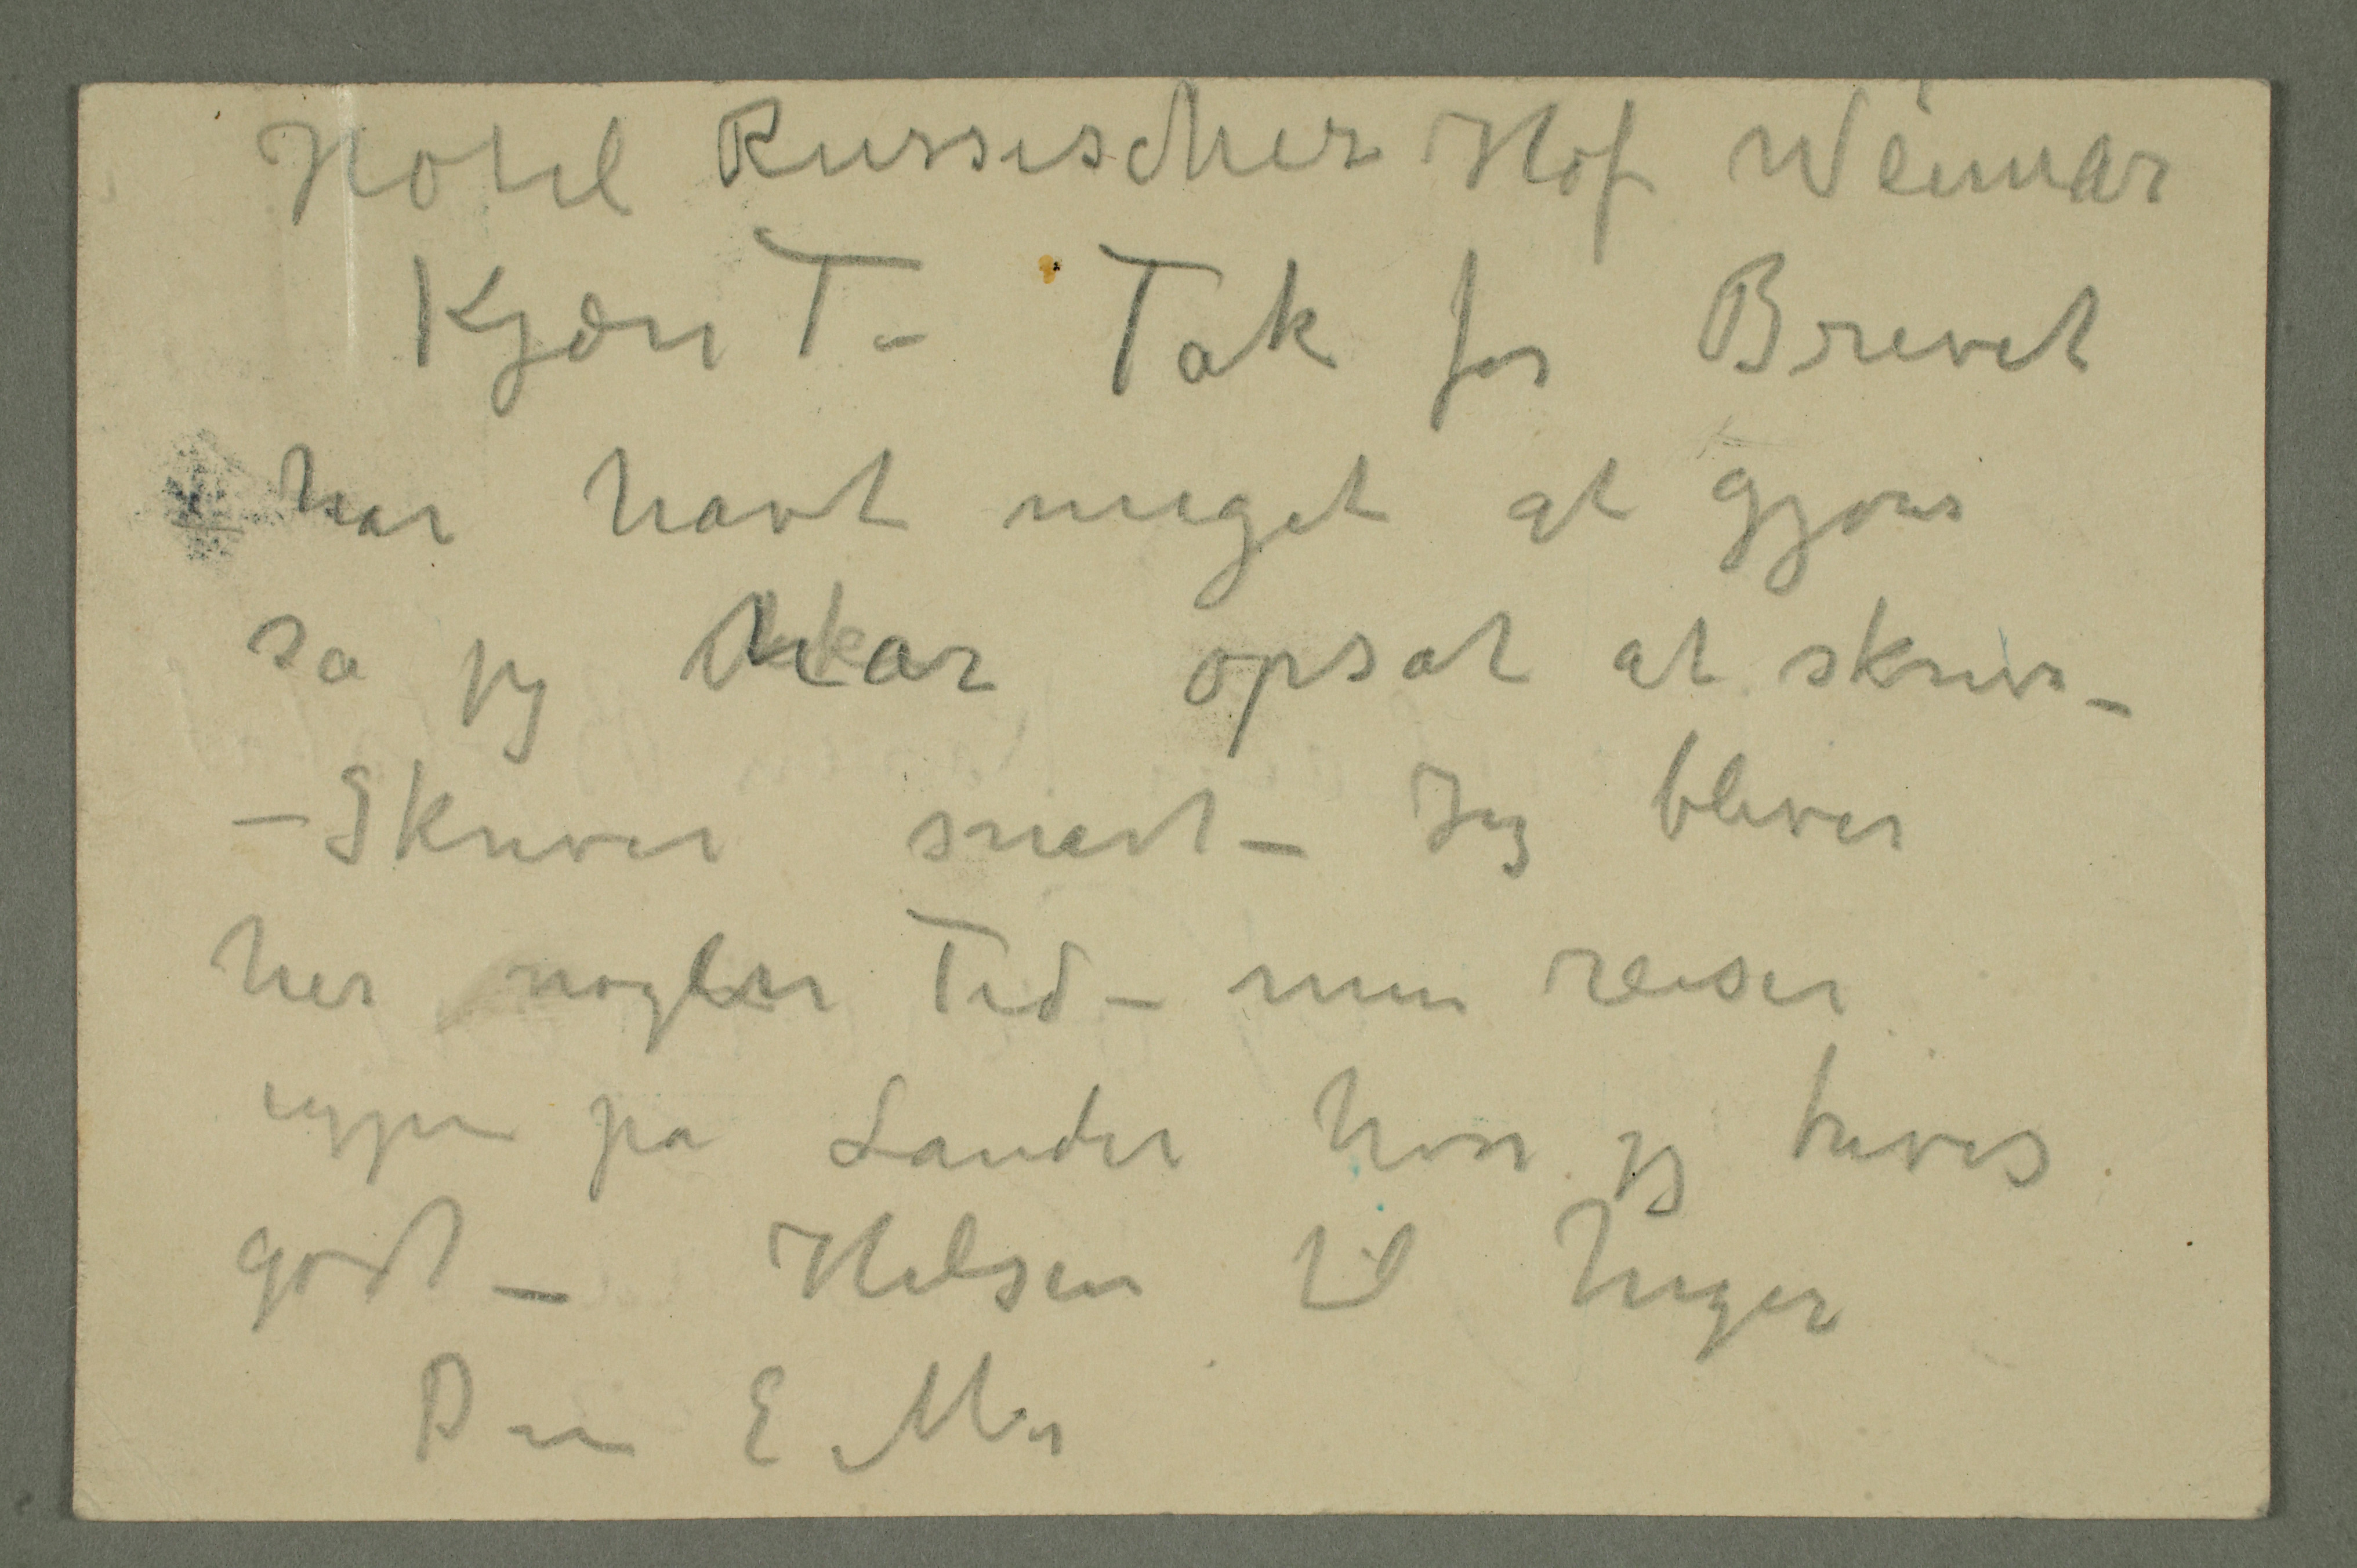 Hotel Russischer Hof Weimar
Kjære T– Tak for Brevet
har havt meget at gjøre
så jeg har opsat at skrive –
– Skriver snart – Jeg bliver
her nogen Tid – men reiser
igjen på Landet hvor jeg trives
godt – Hilsen til Inger
Din E. M